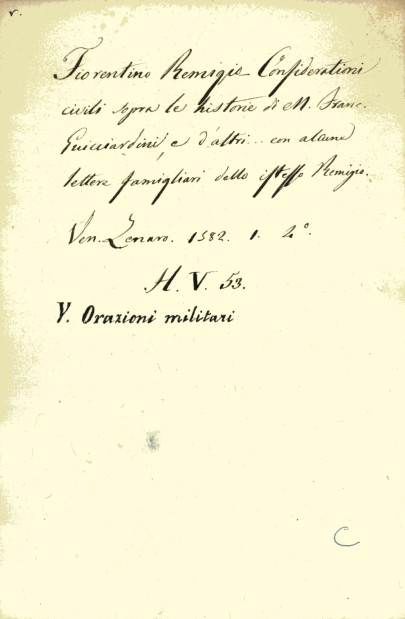 v.
Fiorentino Remigio Considerationi
civili sopra le historie di M. Franc.
Guicciardini, e d'altri... con alcune
lettere famigliari dello istesso Remigio.
Ven. Zenaro. 1582. 1. 4°.
H. V. 53.
V. Orazioni militari
C